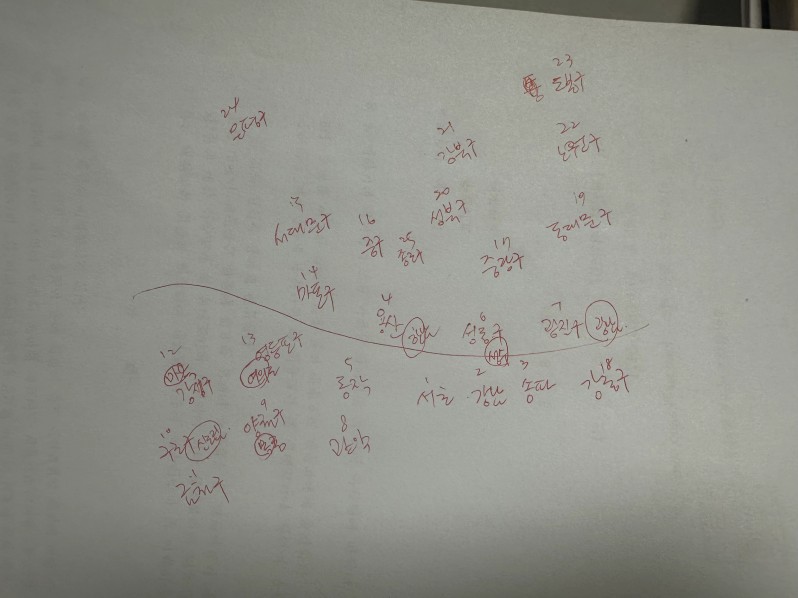 23
도봉구
24
은평구
21
강북구
22
노원구
15
서대문구
16
중구
25
종로
20
성북구
19
동대문구
17
중랑구
14
마포구
4
용산
한남
6
성동구
성수
7
광진구
광남
12
마곡
강서구
13
영등포구
여의도
5
동작
1
서초
2
강남
3
송파
18
강동구
10
구로구
신도림
9
양천구
목동
8
관악
11
금천구